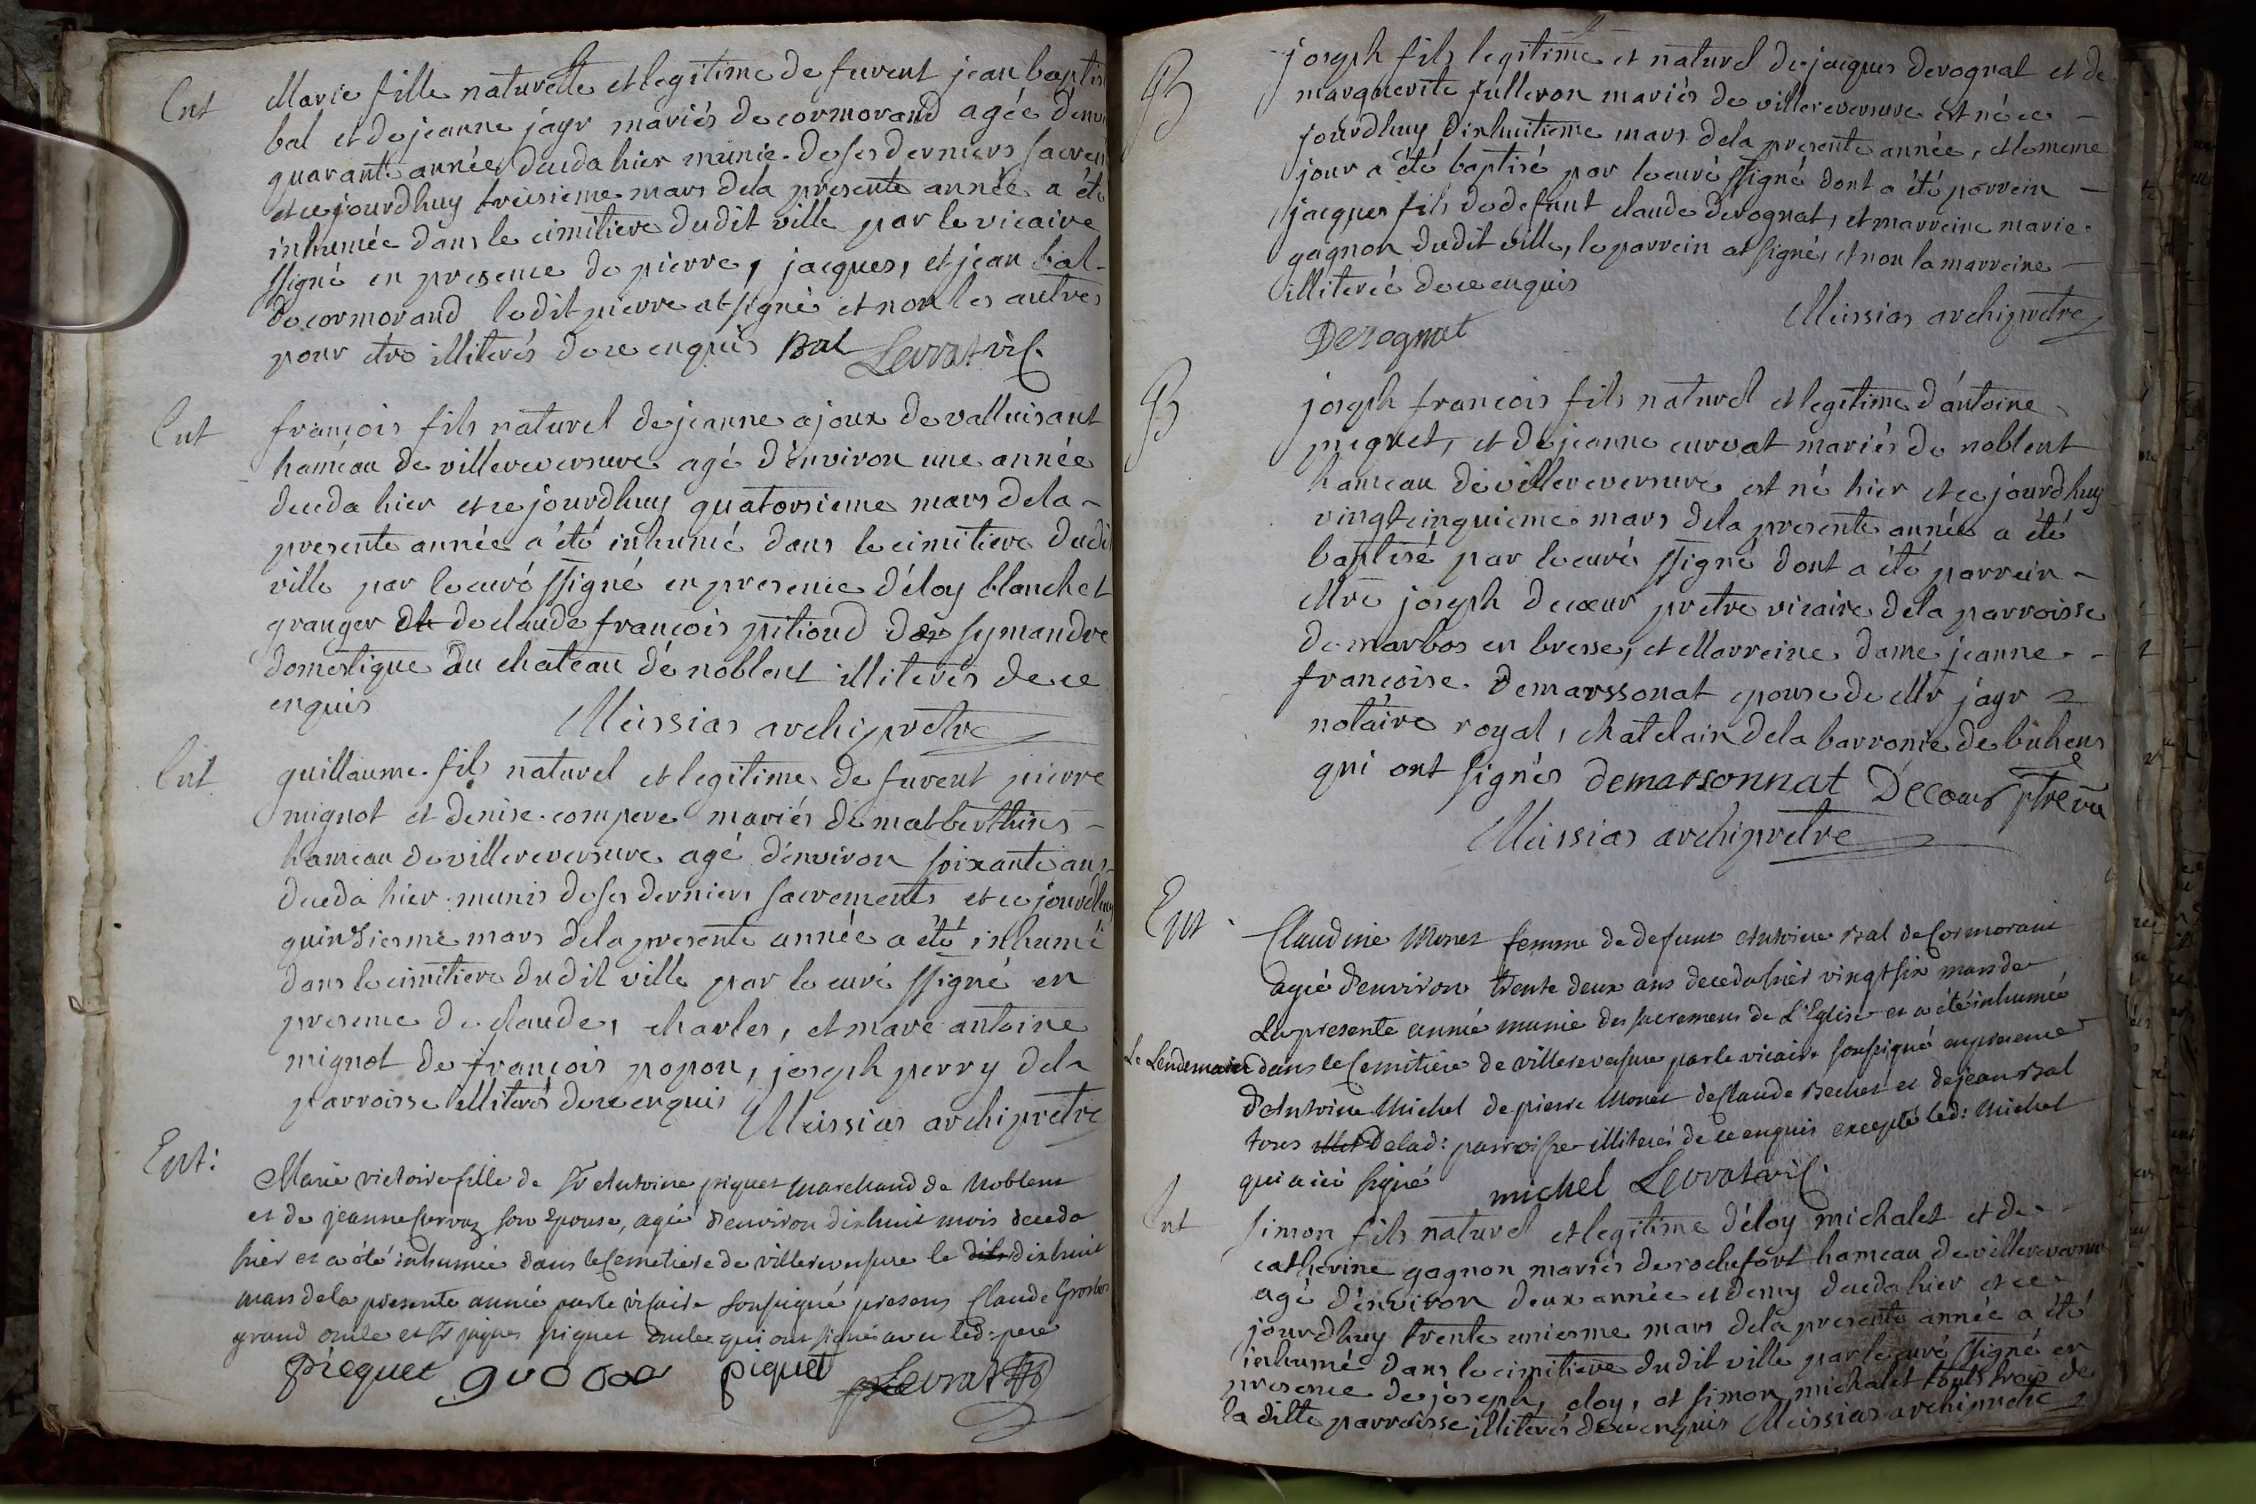 Ent
Marie fille naturelle et legitime de furent jean baptis
bal et de jeanne jayr mariés de cormorand agée d'env
quarante année deceda hier munie de ses derniers sacrem
et ce jourdhuy treisieme mars dela presente année a été
inhumée dans le cimitiere dudit ville par le vicaire
ssigné en presence de pierre, jacques, et jean bal
de cormorand ledit pierre at signé et non les autres
pour etre illiterés de ce enquis Bal Levrat vic.
Ent
françois fils naturel de jeanne ajoux de valluisant
haméau de villereversure agé d'environ une année
deceda hier et ce jourdhuy quatorsieme mars dela
presente année a été inhumé dans le cimitiere dudi
ville par le curé ssigné en presence d'éloy blanchet
granger de claude françois pitioud de symandre
domestique du chateau dé noblent illiterés de ce
enquis
Meissias archipretre
Ent
guillaume fils naturel et legitime de furent pierre
mignot et denise compere mariés de
hameau de villereversure agé d'environ soixante ans
deceda hier munis de ses derniers sacrements et ce jourdhuy
quinsiesme mars dela presente année a été inhumé
dans le cimitiere dudit ville par le curé ssigné en
presence de claude, charles, et marc antoine
mignot de françois popon, joseph perry dela
parroisse illiterés de ce enquis Meissias archipretre
Ent:
Marie victoire fille de Sr Antoine piquet marchand de Noblent
et de jeanne Curvaz son Epouse, agée d'environ dixhuit mois deceda
hier et a été inhumée dans le Cemetiere de villereversure le dixhuit
mars dela presente année par le vicaire soussigné presens Claude Grosbos
grand oncle et Sr jaques piquet oncle qui ont signé avec led: pere
piequet piquet Levrat
B
joseph fils legitime et naturel de jacques derognat et de
marguerite julleron mariés de villereversure est né ce
jourdhuy dixhuitieme mars dela presente année, et le meme
jour a été baptisé par le curé ssigné dont a été parrein
jacques fils de defunt claude derognat, et marreine marie
gagnon dudit ville, le parrein at signé, et non la marreine
illiterée de ce enquis
Meissias archipretre
Derognat
B
joseph françois fils naturel et legitime d'antoine
piequet, et de jeanne curvat mariés de noblent
hameau de villereversure est né hier et ce jourdhuy
vingt cinquieme mars dela presente année a été
baptisé par le curé ssigné dont a été parrein
Mre joseph decoeur pretre vicaire dela parroisse
de marbos en bresse, et Marreine dame jeanne
françoise demarssonat epouse de Mr jayr
notaire royal, chatelain dela barronie de buhens
qui ont signés demarsonnat Decoeur ptre vic
Meissias archipretre
Ent
Claudine Monet femme de defunt Antoine Bal de Cormorant
agée d'environ trente deux ans deceda hier vingt six mars de
La presente année munie des sacremens de L'Eglise et a été inhumée
Le Lendemain dans le Cemitiere de villereversure par le vicaire soussigné en presence
d'Antoine Michel de pierre Monet de Claude Bechet et de jean Bal
tous delad: parroisse illiterés de ce enquis excepté led: Michel
qui a ici signé michel Levrat vic.
Ent
Simon fils naturel et legitime d'éloy michalet et de
catherine gagnon mariés de rochefort hameau de villereversure
agé d'environ deux année et demy deceda hier et ce
jourdhuy trente uniesme mars dela presente année a été
inhumé dans le cimitiere dudit ville par le curé ssigné en
presence de joseph, eloy, et simon michalet touts trois de
la ditte parroisse illiterés de ce enquis Meissias archipretre